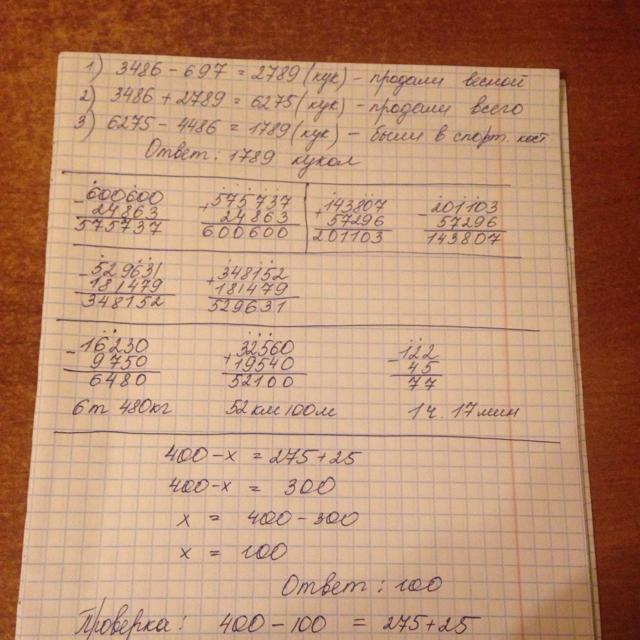 1) 3486 - 697 = 2789 (кук) - продали весной
2) 3486 + 2789 = 6275 (кук) - продали всего
3) 6275 - 4486 = 1789 (кук) - были в спорт. кост.
Ответ: 1789 кукол
- 600600
24863
575737
+ 575737
24863
600600
+ 143807
57296
201103
- 201103
57296
143807
- 529631
181479
348152
+ 348152
181479
529631
- 16230
9750
6480
6т 480кг
+ 32560
19540
52100
52 км 100м
- 122
45
77
1ч. 17мин
400 - x = 275 + 25
400 - x = 300
x = 400 - 300
x = 100
Ответ: 100
Проверка: 400 - 100 = 275 + 25